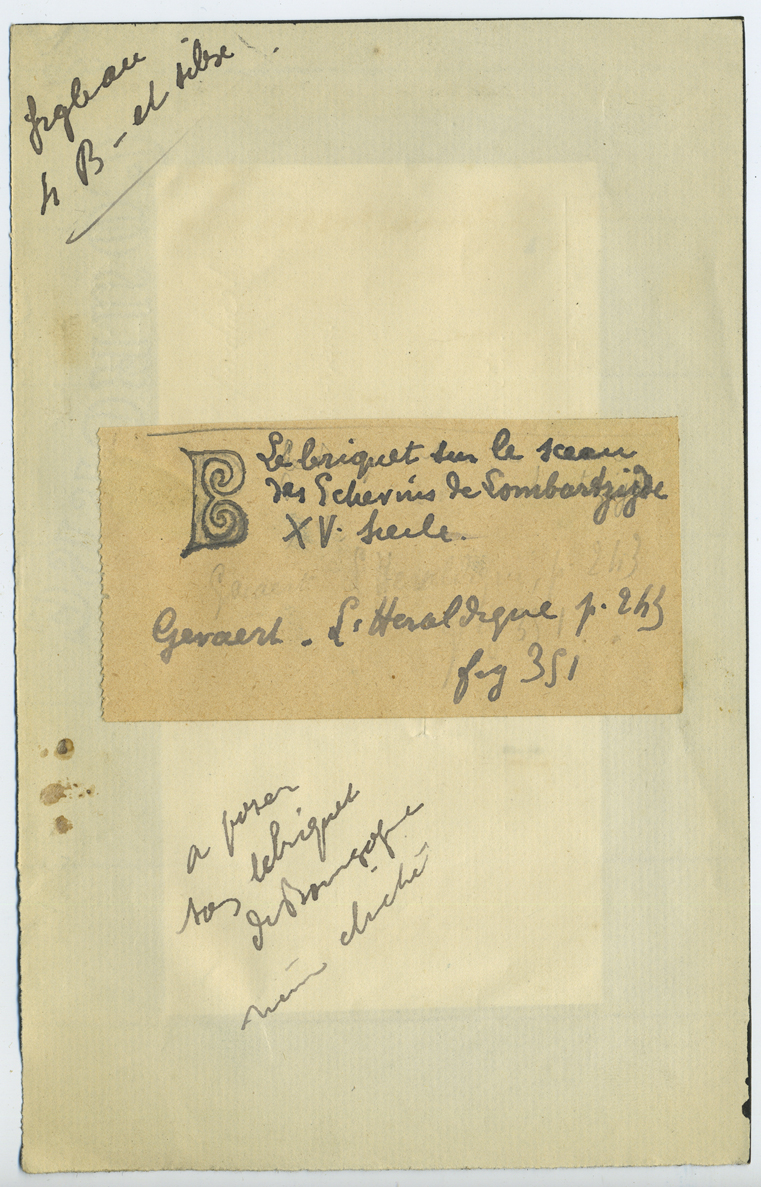 4 B - et silex
Le briquet sur le sceau
des Echevins de Lombartzijde
XV. siecle.
Gevaert. L'Heraldique p. 243
fig 351
a poser
sous le briquet
de Bourgogne
même cliché